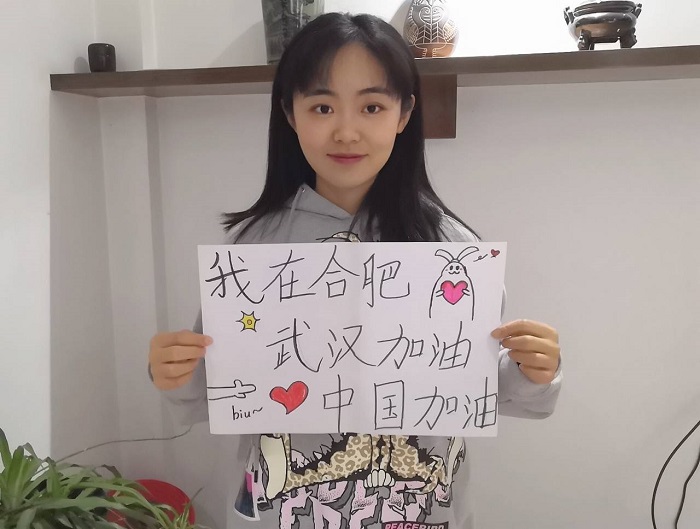 我在合肥
武汉加油
biu~
中国加油
PEACEBIRD